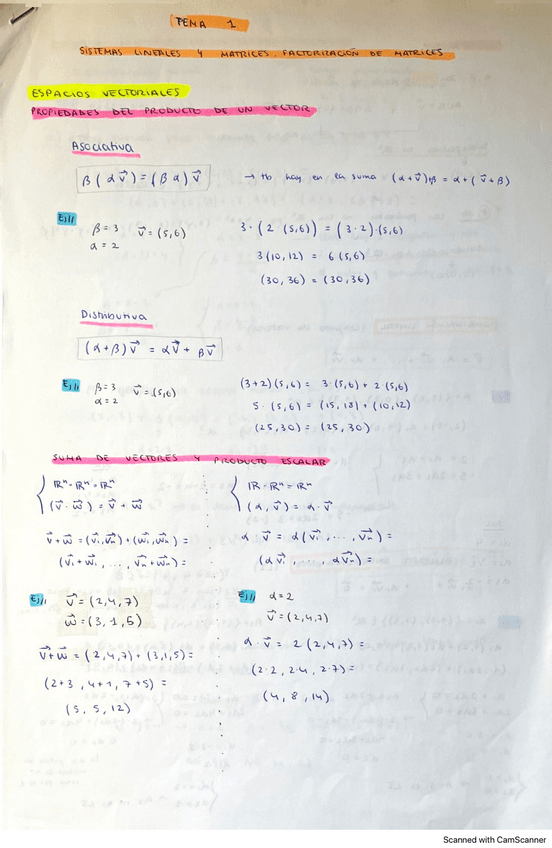 TEMA 1
SISTEMAS LINEALES Y MATRICES. FACTORIZACIÓN DE MATRICES
ESPACIOS VECTORIALES
PROPIEDADES DEL PRODUCTO DE UN VECTOR
Asociativa
β(α v⃗) = (β α) v⃗ → tb hay en la suma (α+v⃗)+β = α+(v⃗+β)
Ej// β=3 v⃗=(5,6) 3·(2·(5,6)) = (3·2)·(5,6)
α=2
3(10,12) = 6(5,6)
(30,36) = (30,36)
Distributiva
(α+β)v⃗ = αv⃗ + βv⃗
Ej// β=3 v⃗=(5,6) (3+2)(5,6) = 3·(5,6) + 2(5,6)
α=2
5·(5,6) = (15,18)+(10,12)
(25,30) = (25,30)
SUMA DE VECTORES Y PRODUCTO ESCALAR
ℝⁿ-ℝⁿ=ℝⁿ ℝ-ℝⁿ=ℝⁿ
(v⃗·w⃗) = v⃗+w⃗ (α,v⃗) = α·v⃗
v⃗+w⃗ = (v⃗₁,v⃗ₙ)+(w⃗₁,w⃗ₙ) = α·v⃗ = α(v⃗₁,...,v⃗ₙ) =
(v⃗₁+w⃗₁,...,v⃗ₙ+w⃗ₙ) = (αv⃗₁,...,αv⃗ₙ) =
Ej// v⃗=(2,4,7) Ej// α=2
w⃗=(3,1,5) v⃗=(2,4,7)
v⃗+w⃗ = (2,4,7)+(3,1,5) = α·v⃗ = 2(2,4,7) =
(2+3, 4+1, 7+5) = (2·2, 2·4, 2·7) =
(5, 5, 12) (4, 8, 14)
Scanned with CamScanner